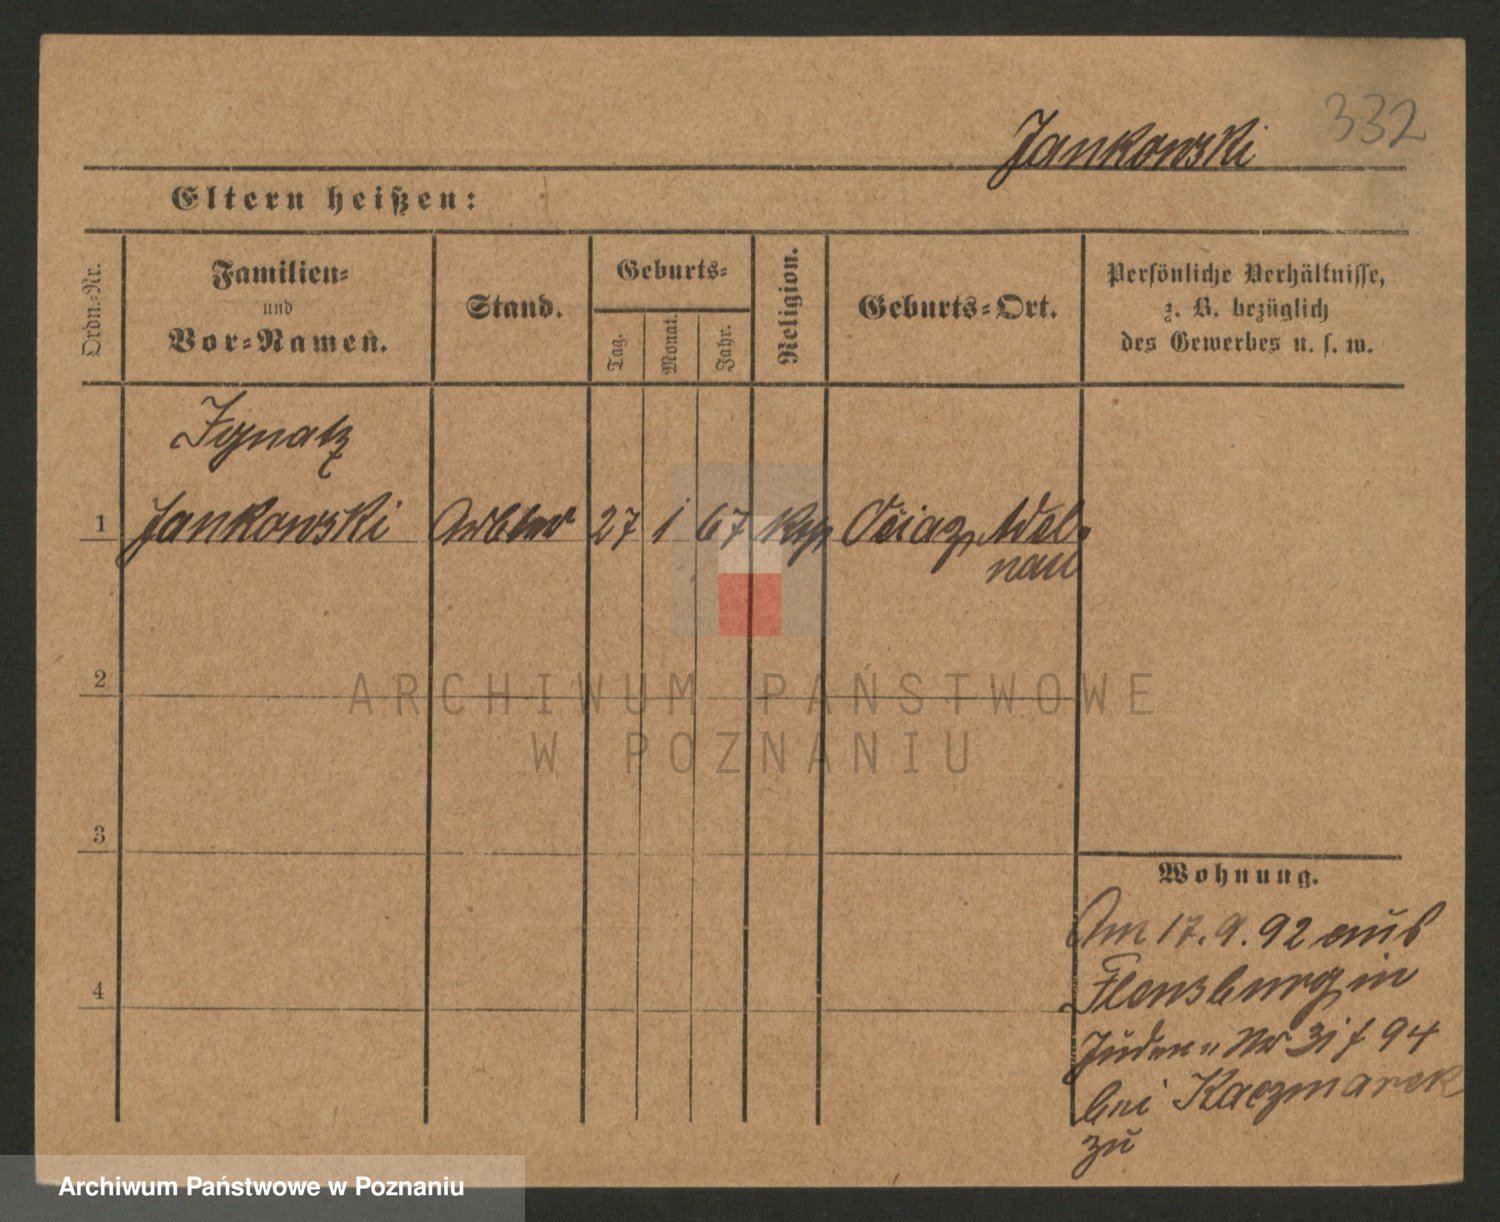 332
Jankowski
Eltern heißen:
Ordn.-Nr.
Familien-
und
Vor-Namen.
Stand.
Geburts-
Tag.
Monat.
Jahr.
Religion.
Geburts-Ort.
Persönliche Verhältnisse,
z. B. bezüglich
des Gewerbes u. s. w.
Ignatz
1 Jankowski 27 1 67 Adel-
nau
2
3
4
Wohnung.
Am 17. 9. 92 aus
Flensburg in
Juden „ Nr 31 94
bei Kaczmarek
zu
ARCHIWUM PAŃSTWOWE
W POZNANIU
Archiwum Państwowe w Poznaniu